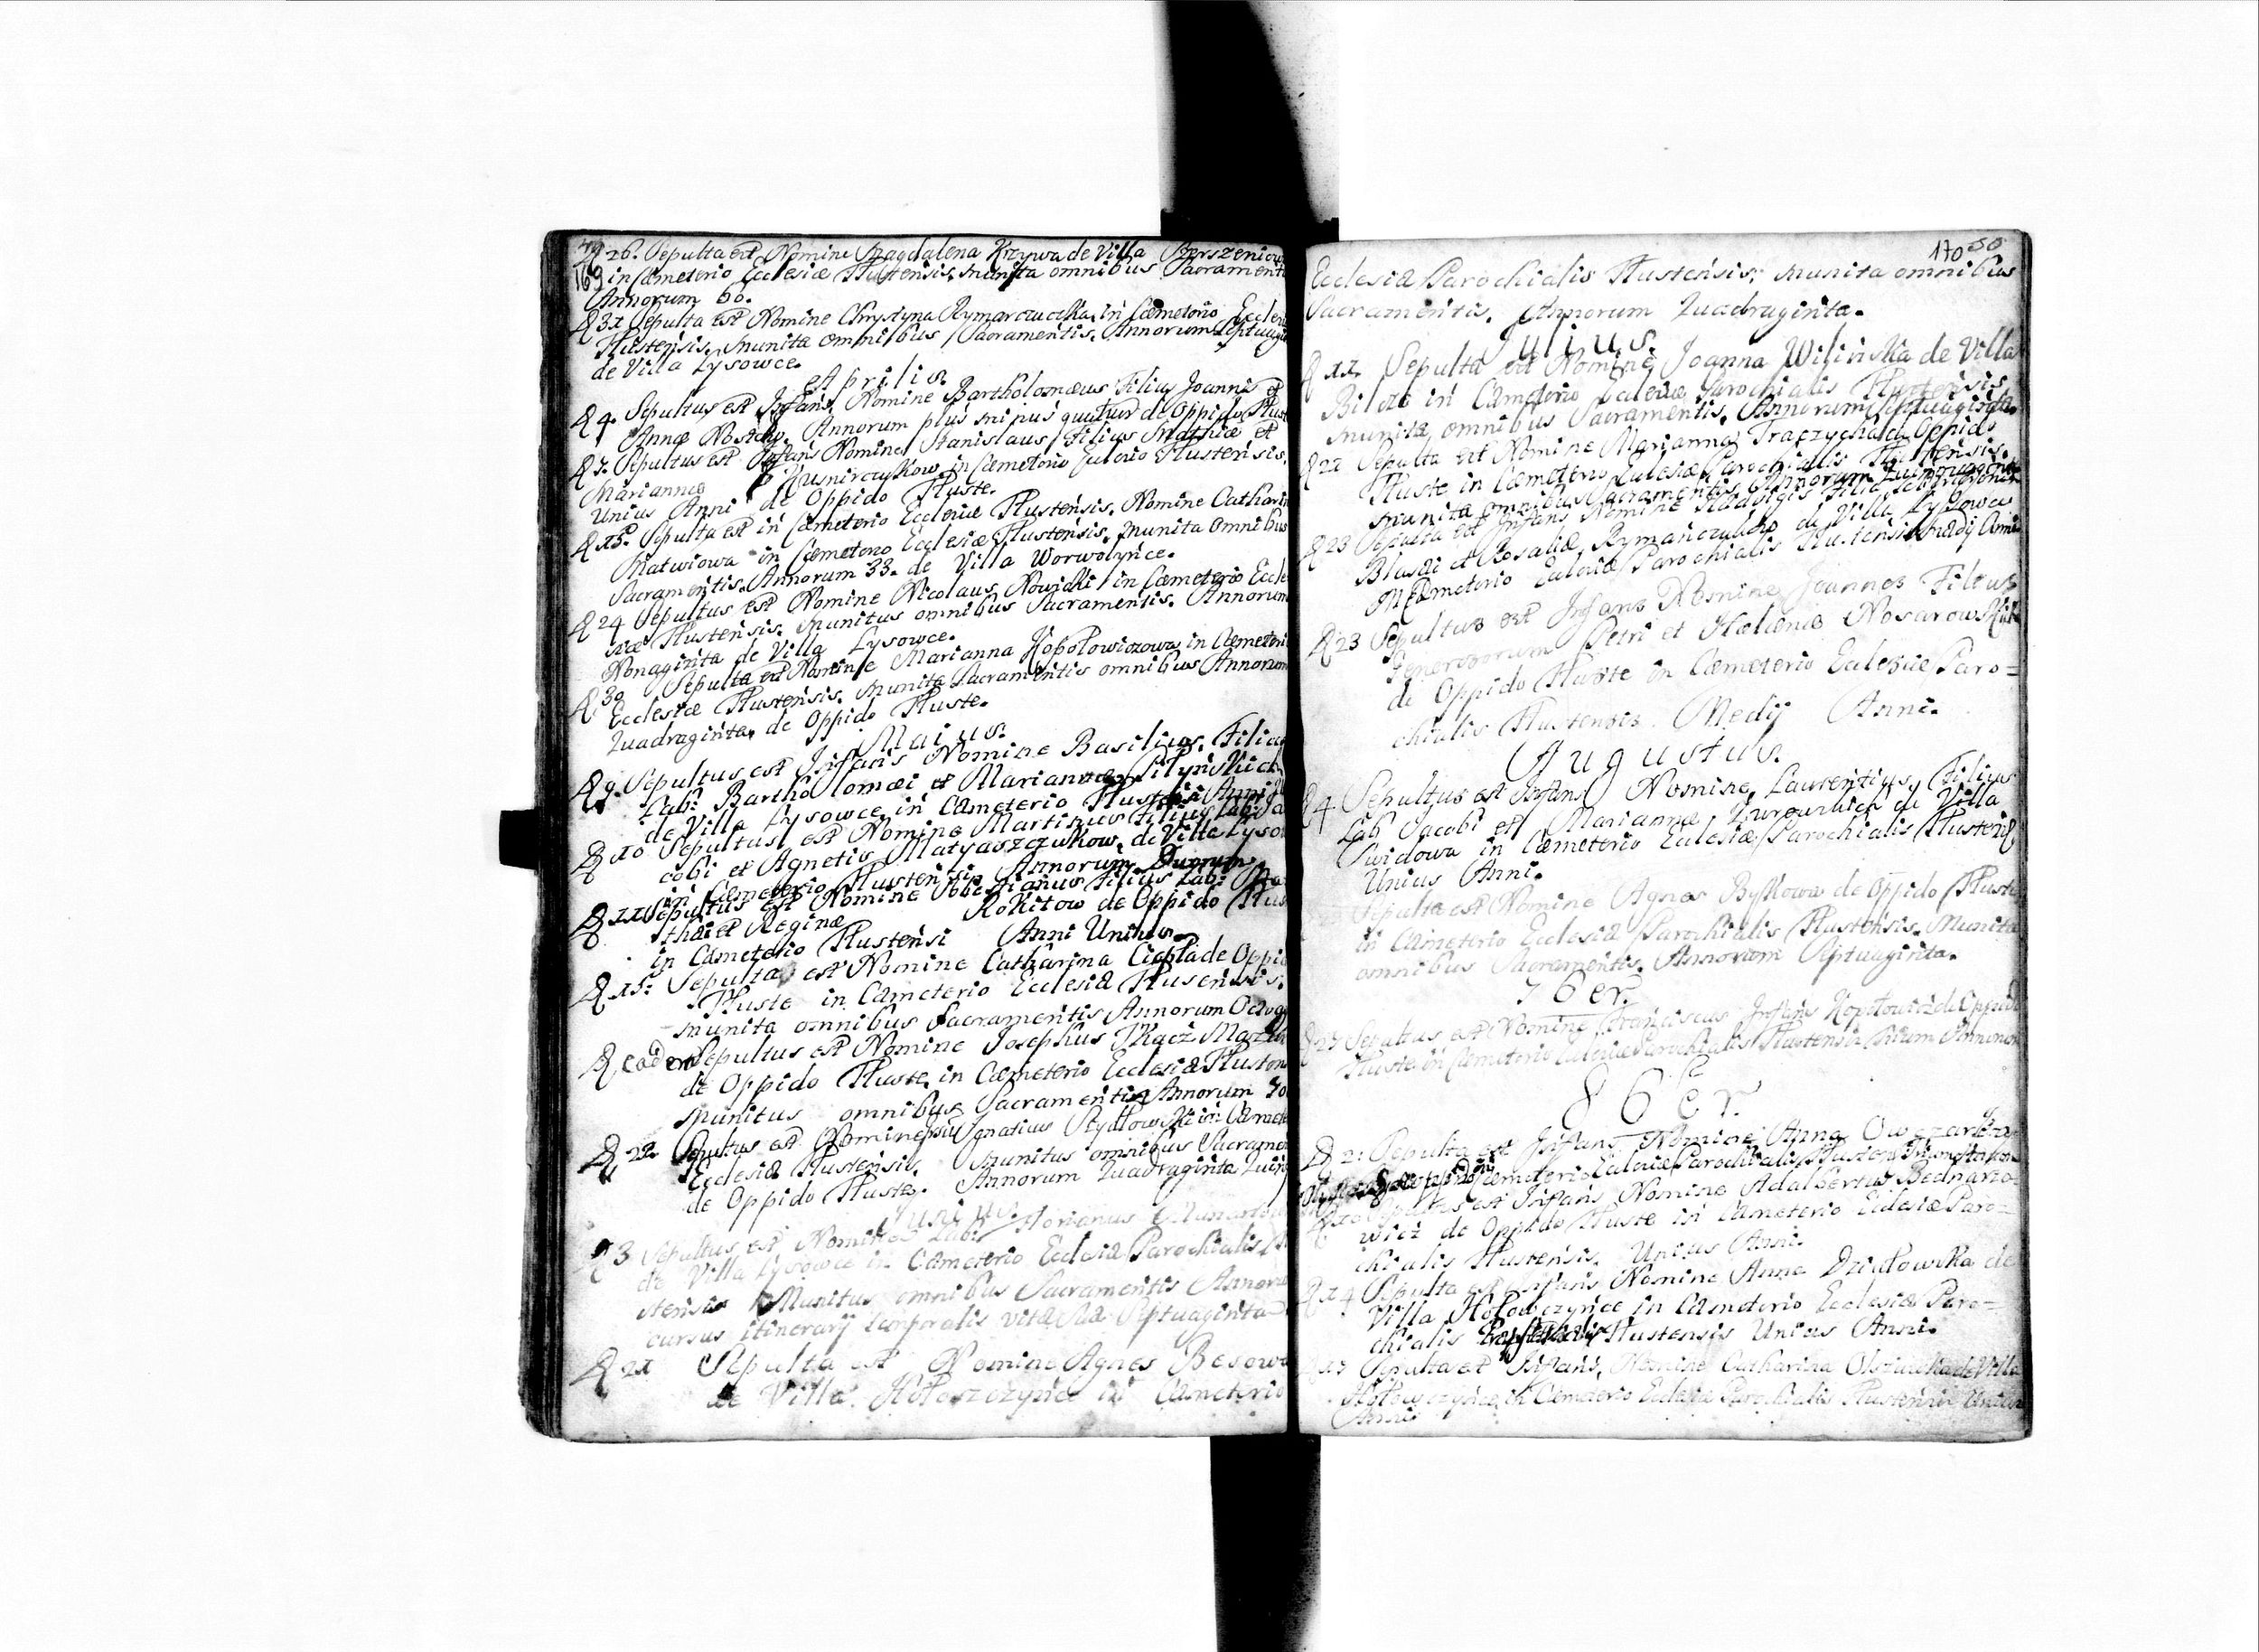 49
169
D 26. Sepulta est Nomine Magdalena Krzywa de Villa
in Cæmeterio Ecclesiæ Tlustensis, munita omnibus Sacramenti
Annorum 60.
D 31 Sepulta est Nomine Chrystyna Rymarczuczka in Cæmeterio Eccles
Tlustensis, munita omnibus Sacramentis. Annorum Septuagin
de Villa Lysowce.
Aprilis.
D 4. Sepultus est Infans, Nomine Bartholomæus Filius Joannis et
Annæ Annorum plus minus quatuor de Oppido Tlust
D 7. Sepultus est Infans Nomine Stanislaus Filius Mathiæ et
Mariannæ Kusnirczykow in Cæmeterio Tlustensis.
Unius Anni de Oppido Tluste.
D 15. Sepulta est in Cæmeterio Ecclesiæ Tlustensis. Nomine Catharin
Matwiowa in Cæmeterio Ecclesiæ Tlustensis, munita omnibus
Sacramentis. Annorum 33. de Villa Worwolynce.
D 24 Sepultus est Nomine Nicolaus Nowicki in Cæmeterio Eccle
siæ Tlustensis. munitus omnibus Sacramentis. Annorum
Nonaginta de Villa Lysowce.
D 30 Sepulta est Nomine Marianna Kopotowiczowa in Cæmeteri
Ecclesiæ Tlustensis. munita Sacramentis omnibus Annorum
Quadraginta, de Oppido Tluste.
Maius.
D 9. Sepultus est Infans Nomine Basilius, Filius
Lab: Bartholomæi et Mariannæ Pilynskich
de Villa Lysowce in Cæmeterio
D 10 Sepultus est Nomine Martinus Filius Lab: Ja
cobi et Agnetis Matyaszczukow, de Villa Lyso
in Cæmeterio Tlustensi Annorum Duorum
D 11 Sepultus est Nomine Sobestianus Filius Lab: Ma
thæi et Reginæ Rokitow de Oppido Tlus
in Cæmeterio Tlustensi Anni Unius.
D 15: Sepulta est Nomine Catharina Ciepla de Oppid
Tluste in Cæmeterio Ecclesiæ Tlusensis.
munita omnibus Sacramentis Annorum Octog
D eadem Sepultus est Nomine Josephus Tkacz
de Oppido Tluste, in Cæmeterio Ecclesiæ Tlusten
munitus omnibus Sacramentis Annorum 70
D 22. Sepultus est Nomine Ignatius in Cæmete
Ecclesiæ Tlustensis. munitus omnibus Sacramen
de Oppido Tluste. Annorum Quadraginta Quin
Junius.
D 3 Sepultus est Nomine Lab: Florianus
de Villa Lysowce in Cæmeterio Ecclesiæ Parochialis
stensis Munitus omnibus Sacramentis Annoru
cursus itinerarij temporalis vitæ suæ Septuaginta
D 21 Sepulta est Nomine Agnes Besowa
de Villa in Cæmeterio
170 50
Ecclesiæ Parochialis Tlustensis, munita omnibus
Sacramentis. Annorum Quadraginta.
Julius.
D 11. Sepulta est Nomine Joanna Wilinska de Villa
in Cæmeterio Ecclesiæ Parochialis Tlustensis,
munita omnibus Sacramentis. Annorum Septuaginta.
D 22 Sepulta est Nomine Marianna de Oppido
Tluste in Cæmeterio Ecclesiæ Parochialis Tlustensis.
munita omnibus Sacramentis Annorum
D 23 Sepulta est Infans Nomine Hadvigis Filia
Blasii et Rosaliæ de Villa Lysowce
Cæmeterio Ecclesiæ Parochialis Tlustensis Medij Anni
D 23 Sepultus est Infans Nomine Joannes Filius
Generosorum Petri et Helenæ
de Oppido Tluste in Cæmeterio Ecclesiæ Paro=
chialis Tlustensis. Medij Anni.
Augustus.
D 4. Sepultus est Infans Nomine Laurentius, Filius
Lab Jacobi et Mariannæ de Villa
Swidowa in Cæmeterio Ecclesiæ Parochialis
Unius Anni.
Sepulta est Nomine Agnes Bystowa de Oppido Tluste
in Cæmeterio Ecclesiæ Parochialis Tlustensis. Munita
omnibus Sacramentis. Annorum Septuaginta.
7 6er.
D 27 Sepultus est Nomine Franciscus Infans Kopotowicz de Oppido
Tluste in Cæmeterio Ecclesiæ Parochialis Tlustensis Annorum
8 6er.
D 2: Sepulta est Infans Nomine Anna
Cæmeterio Ecclesiæ Parochialis
D 10 Sepultus est Infans Nomine Adalbertus Bednarzo=
wicz de Oppido Tluste in Cæmeterio Ecclesiæ Paro=
chialis Tlustensis. Unius Anni.
D 14 Sepulta est Infans Nomine Anna Dziadowska de
Villa Holowczynce in Cæmeterio Ecclesiæ Paro=
chialis Tlustensis Unius Anni.
Sepulta est Infans, Nomine Catharina de Villa
Holowczynce in Cæmeterio Ecclesiæ Parochialis Tlustensis Unius
Anni.